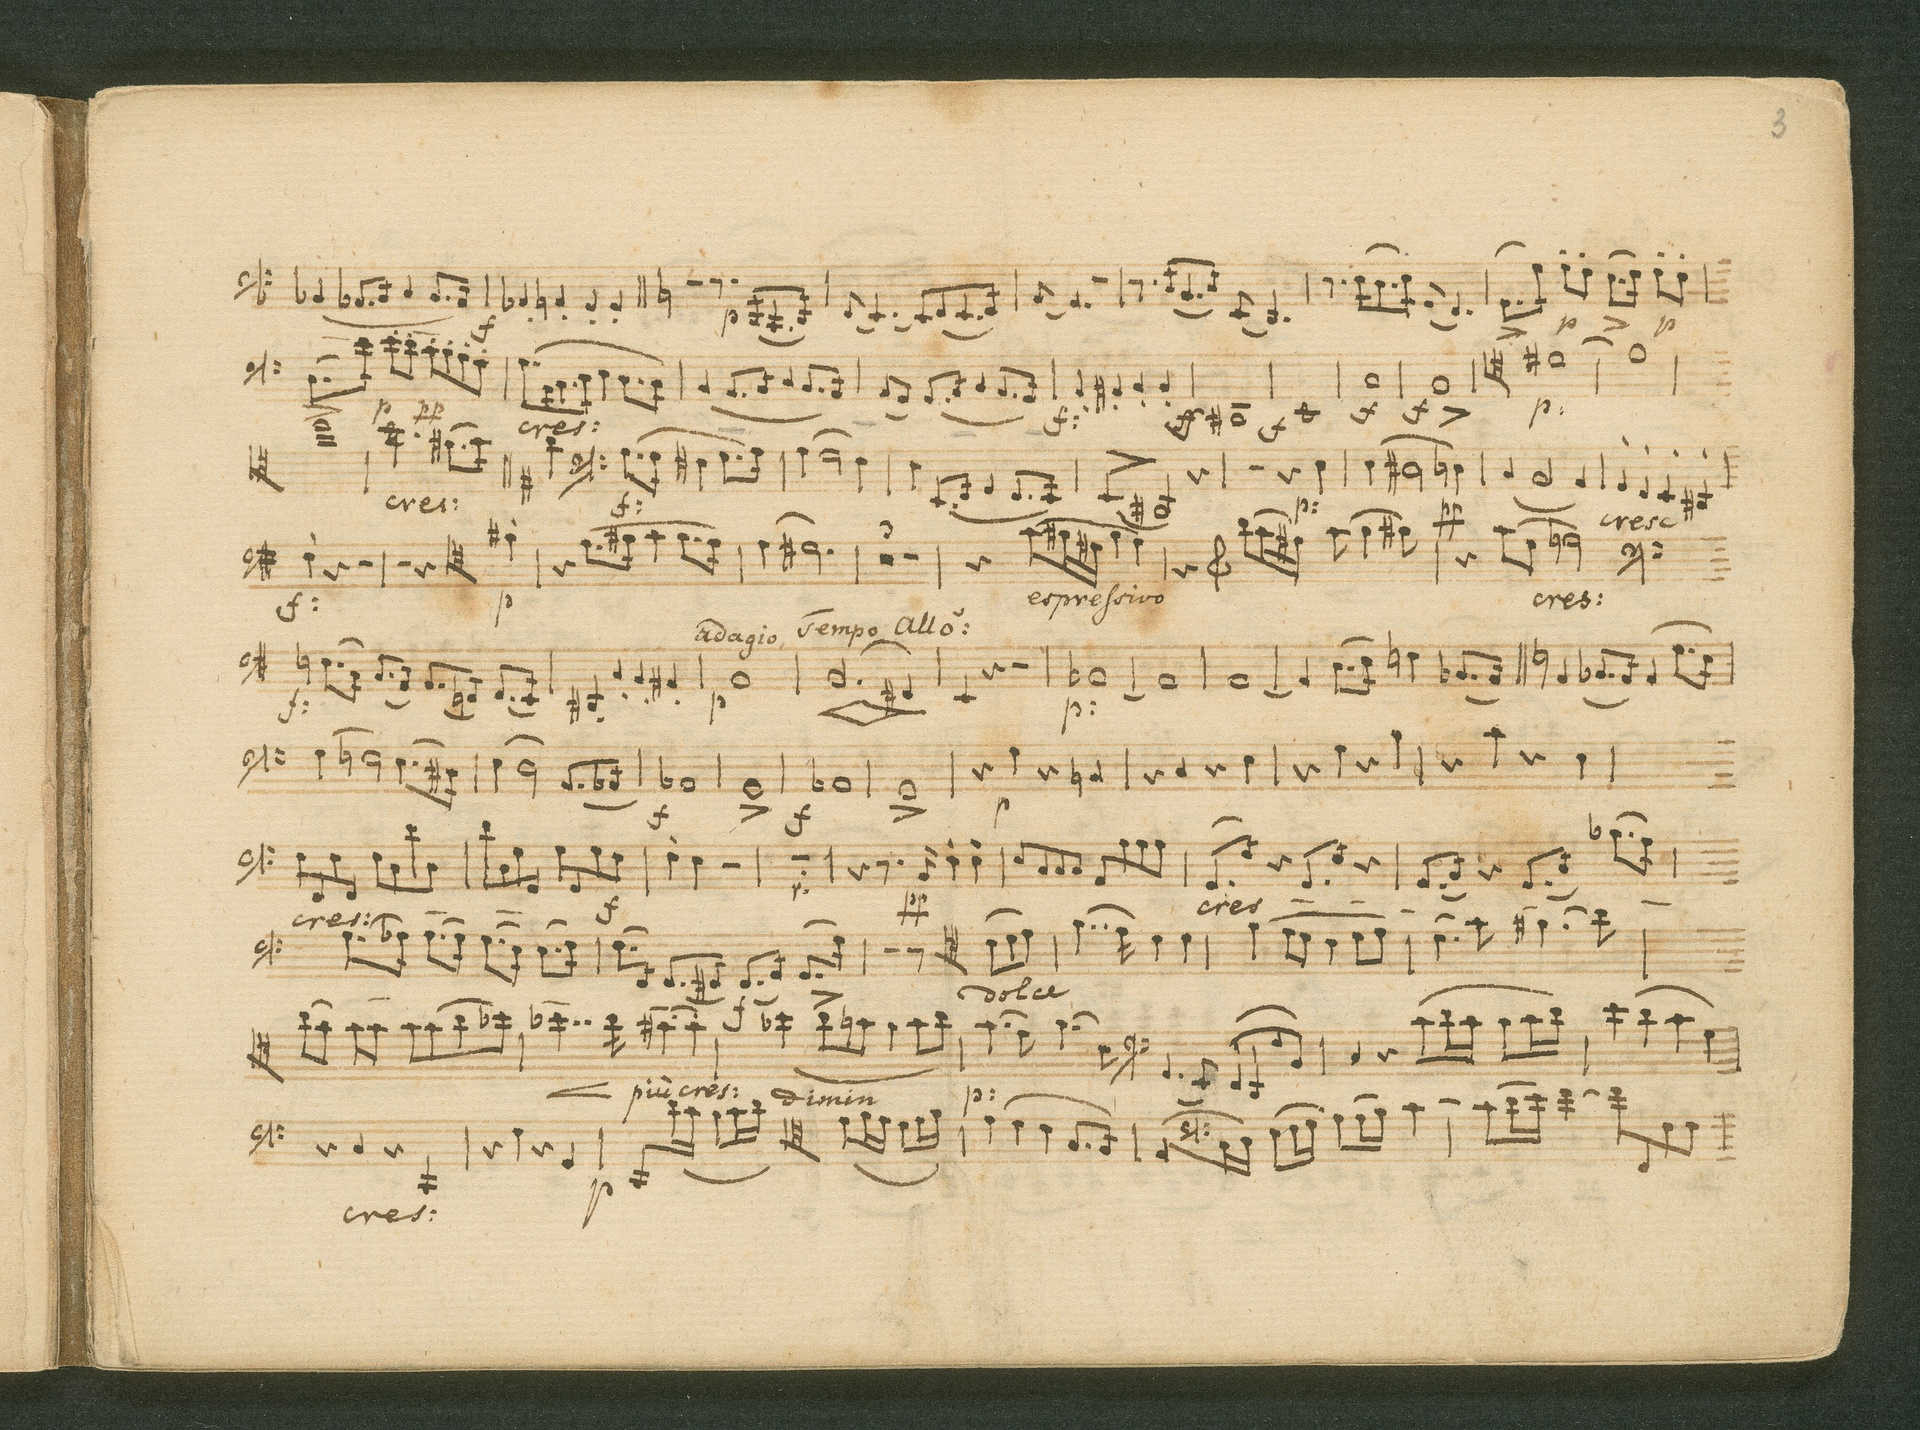 3
f p p p
p pp cres: f: ff f f f p:
cres: f: p: pp cresc
f: p espressivo cres:
adagio, Tempo Allo:
f: p p:
f f p
cres: f pp cres
f dolce
più cres: dimin p:
cres: p